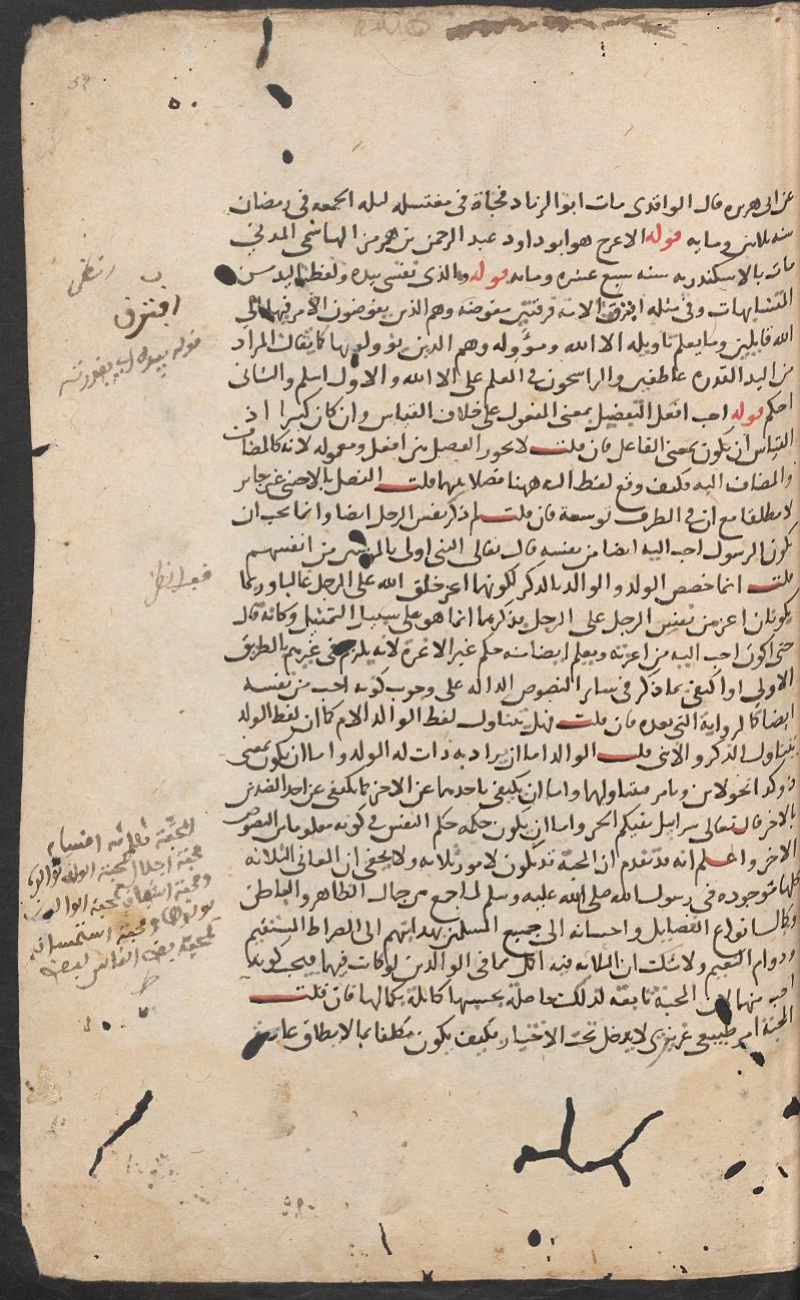 عن ابى هريره قال الواقدى مات ابو الزناد فجأة فى مغتسله ليله الجمعه فى رمضان
سنه ثلاثين ومايه قوله الاعرج هو ابو داود عبد الرحمن بن هرمز الهاشمى المدنى
مات بالاسكندريه سنه سبع عشره ومايه قوله والذى نفسى بيده ولفظ اليد من
المتشابهات وفى مثله افترق الامه فرقتين مفوضه وهم الذين يفوضون الامر فيها الى
الله قايلين وما يعلم تاويله الا الله ومؤوله وهم الذين يؤولونها كما يقال المراد
من اليد القدره عاطفين والراسخون فى العلم على الا الله والاول اسلم والثانى
احكم قوله احب افعل التفضيل بمعنى المفعول على خلاف القياس وان كان كثيرا اذ
القياس ان يكون بمعنى الفاعل فان قلت لا يجوز الفصل بين افعل ومعموله لانه كالمضاف
والمضاف اليه فكيف وقع لفظ اليه ههنا فصلا بينهما قلت الفصل بالاجنبى غير جايز
لا مطلقا مع ان فى الظرف توسعة فان قلت لم ما ذكر نفس الرجل ايضا وانما يجب ان
يكون الرسول احب اليه ايضا من نفسه قال تعالى النبى اولى بالمؤمنين من انفسهم
قلت انما خصص الولد والوالد بالذكر لكونهما اعز خلق الله على الرجل غالبا وربما
يكونان اعز من نفس الرجل على الرجل فذكرهما انما هو على سبيل التمثيل وكانه قال
حتى اكون احب اليه من اعزته ويعلم ايضا منه حكم غير الاعزة لانه يلزم فى غيرهم بالطريق
الاولى او اكتفى بما ذكر فى ساير النصوص الداله على وجوب كونه احب من نفسه
ايضا كالرواية التى بعده فان قلت فهل يتناول لفظ الوالد الام كما ان لفظ الولد
يتناول الذكر والانثى قلت الوالد اما ان يراد به ذات له الولد واما ان يكون بمعنى
ذو كذا نحو لابن وتامر فيتناولهما واما ان يكتفى باحدهما عن الاخر كما يكتفى عن احد الضدين
بالاخر قال تعالى سرابيل تقيكم الحر واما ان يكون حكمه حكم النفس فى كونه معلوما من النصوص
الاخر واعلم انه قد تقدم ان المحبة قد تكون لامور ثلاثه ولا يخفى ان المعانى الثلاثه
كلها موجوده فى رسول الله صلى الله عليه وسلم لما جمع من جمال الظاهر والباطن
وكمال انواع الفضايل واحسانه الى جميع المسلمين بهدايتهم الى الصراط المستقيم
ودوام النعيم ولا شك ان الثلاثه فيه اكمل مما فى الوالدين لو كانت فيهما فيجب كونه
احب منهما لان المحبة تابعة لذلك حاصلة بحسبها كاملة بكمالها فان قلت
المحبة امر طبيعى غريزى لا يدخل تحت الاختيار فكيف يكون مكلفا بما لا يطاق عادة
افترق
قوله بيده اى بقدرته
المحبّة ثلاثه اقسام
محبّة اجلال كمحبّة الولد للوالد
ومحبة اشفاق كمحبة الوالد
لولدها ومحبة استحسان
كمحبّة بعض الناس لبعض